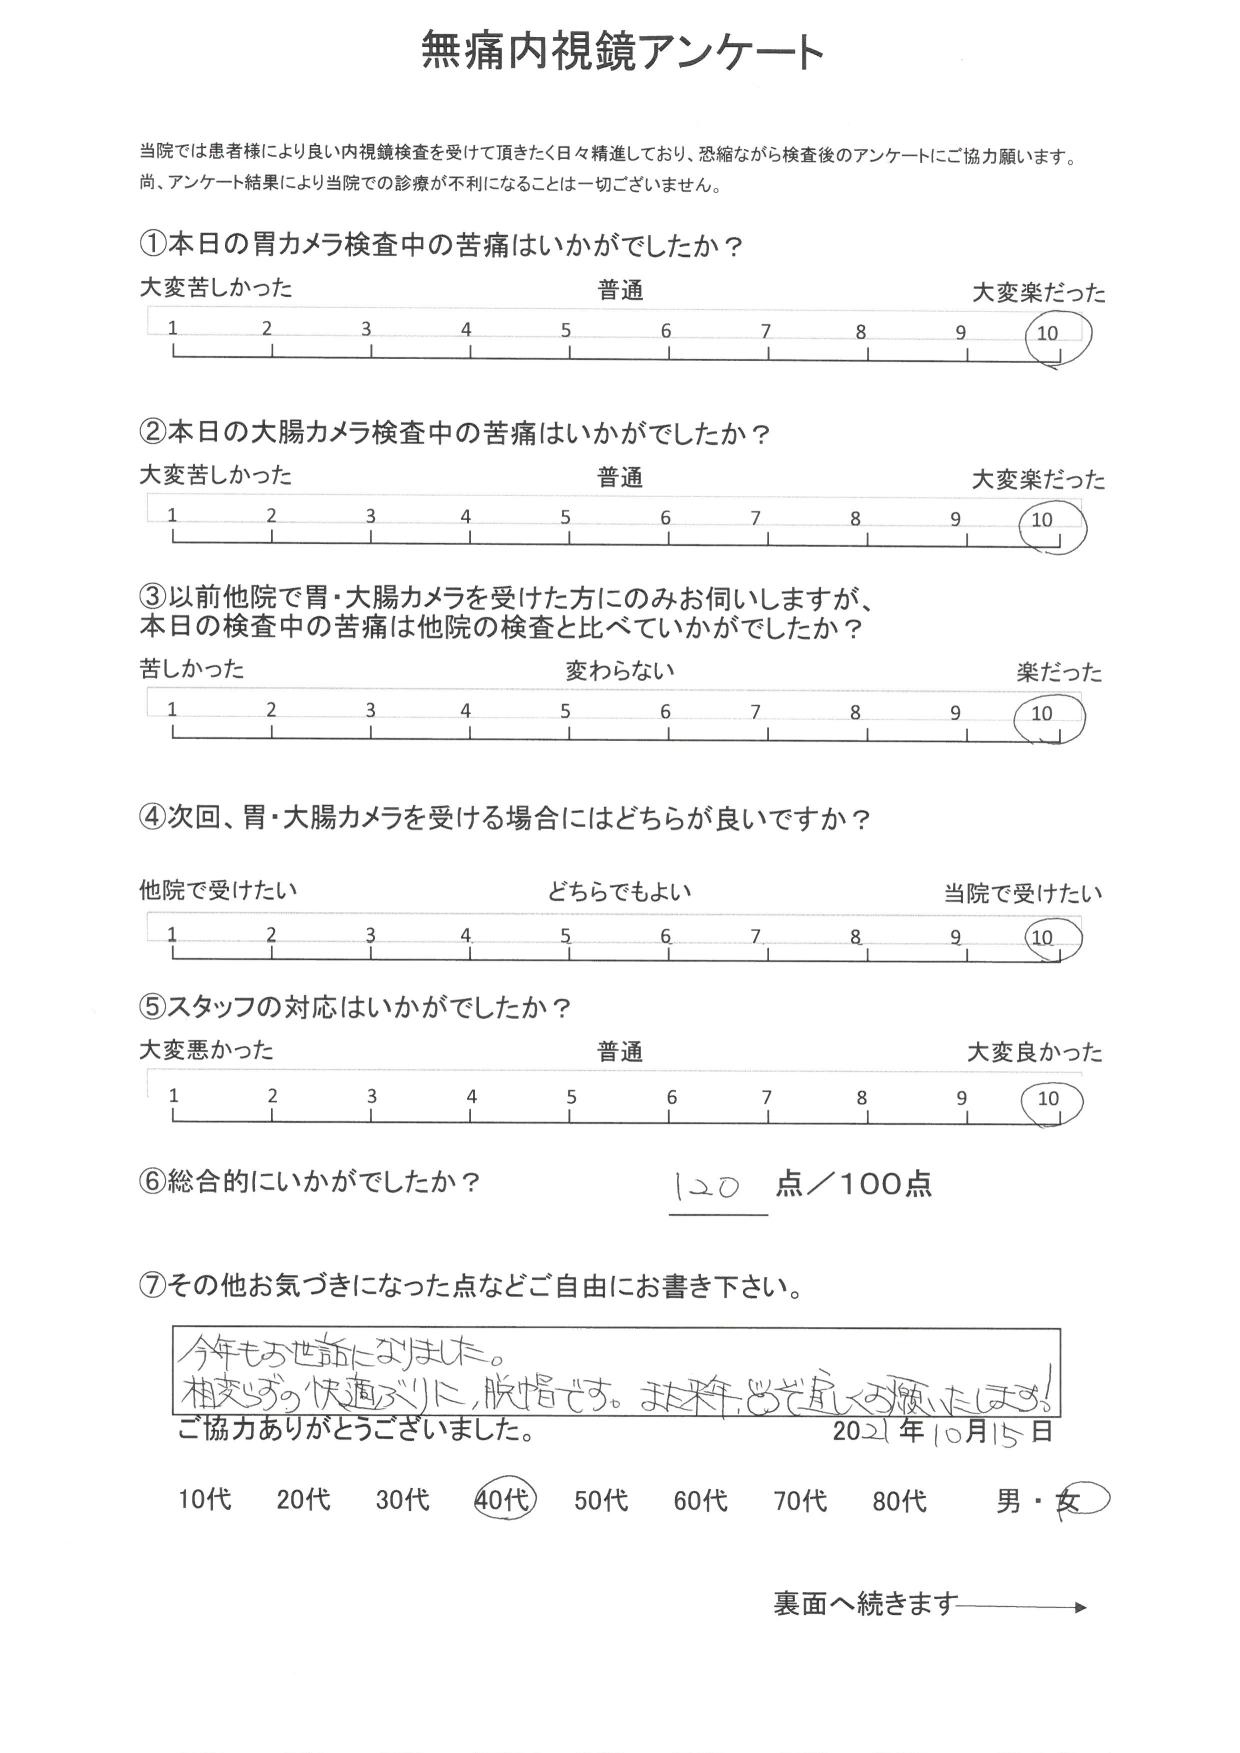 無痛内視鏡アンケート
当院では患者様により良い内視鏡検査を受けて頂きたく日々精進しており、恐縮ながら検査後のアンケートにご協力願います。
尚、アンケート結果により当院での診療が不利になることは一切ございません。
①本日の胃カメラ検査中の苦痛はいかがでしたか？
大変苦しかった 普通 大変楽だった
1 2 3 4 5 6 7 8 9 10
②本日の大腸カメラ検査中の苦痛はいかがでしたか？
大変苦しかった 普通 大変楽だった
1 2 3 4 5 6 7 8 9 10
③以前他院で胃・大腸カメラを受けた方にのみお伺いしますが、
本日の検査中の苦痛は他院の検査と比べていかがでしたか？
苦しかった 変わらない 楽だった
1 2 3 4 5 6 7 8 9 10
④次回、胃・大腸カメラを受ける場合にはどちらが良いですか？
他院で受けたい どちらでもよい 当院で受けたい
1 2 3 4 5 6 7 8 9 10
⑤スタッフの対応はいかがでしたか？
大変悪かった 普通 大変良かった
1 2 3 4 5 6 7 8 9 10
⑥総合的にいかがでしたか？ 120 点／100点
⑦その他お気づきになった点などご自由にお書き下さい。
今年もお世話になりました。
相変らずの快適ぶりに、脱帽です。また来年、どうぞ宜しくお願いいたします!
ご協力ありがとうございました。 2021年10月15日
10代 20代 30代 40代 50代 60代 70代 80代 男・女
裏面へ続きます